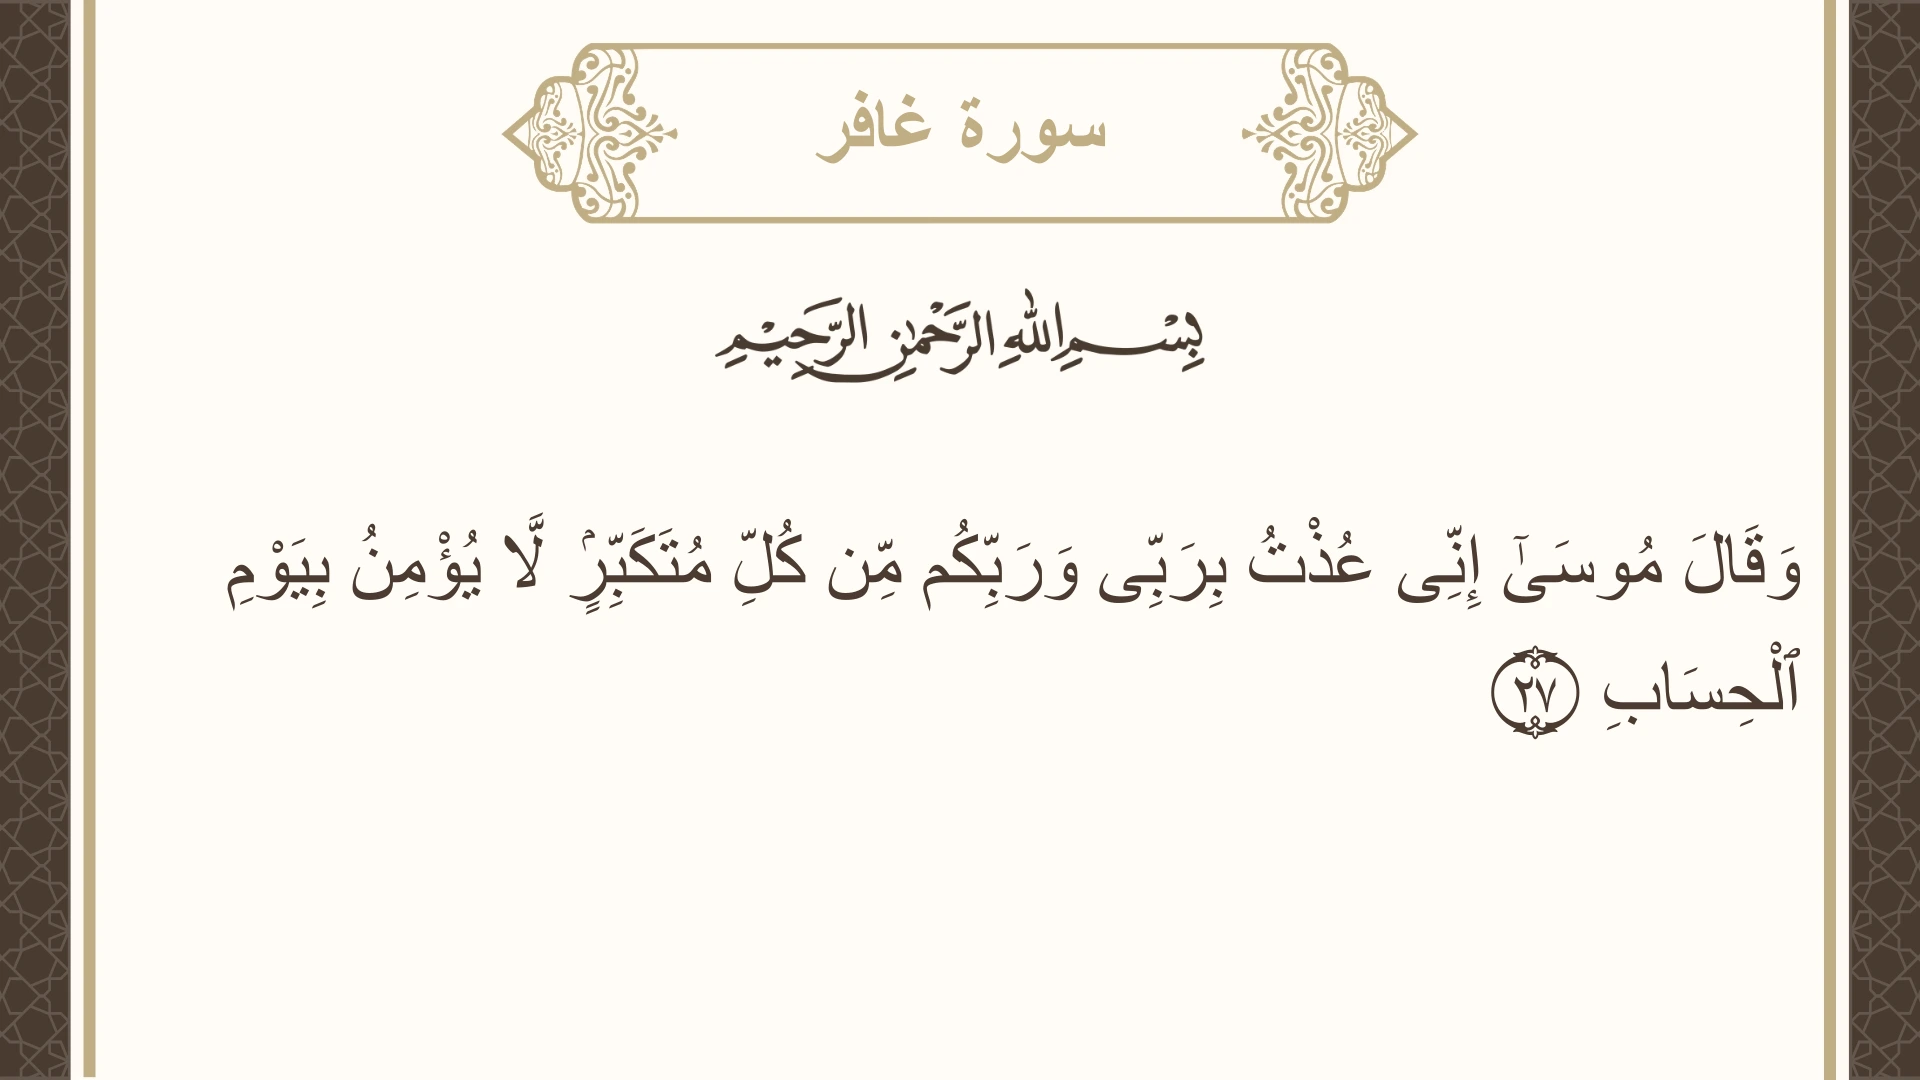 سورة غافر
بِسْمِ اللهِ الرَّحْمٰنِ الرَّحِيْمِ
وَقَالَ مُوسَىٰٓ إِنِّى عُذْتُ بِرَبِّى وَرَبِّكُم مِّن كُلِّ مُتَكَبِّرٍۢ لَّا يُؤْمِنُ بِيَوْمِ
ٱلْحِسَابِ ٢٧